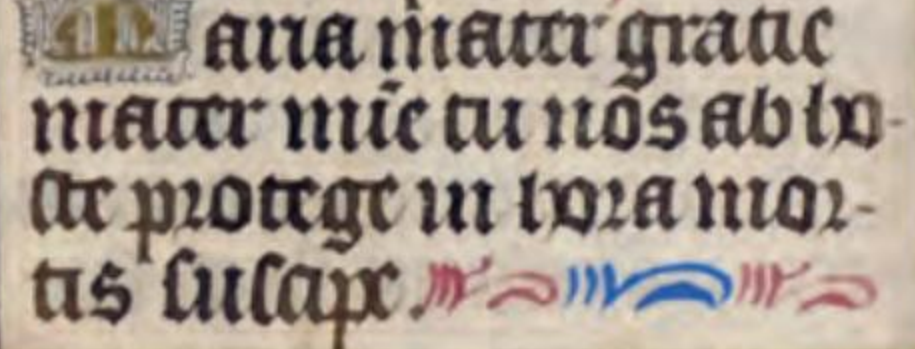 Maria mater gratie
mater mīe tu nos ab ho-
ste protege in hora mor-
tis suscipe.